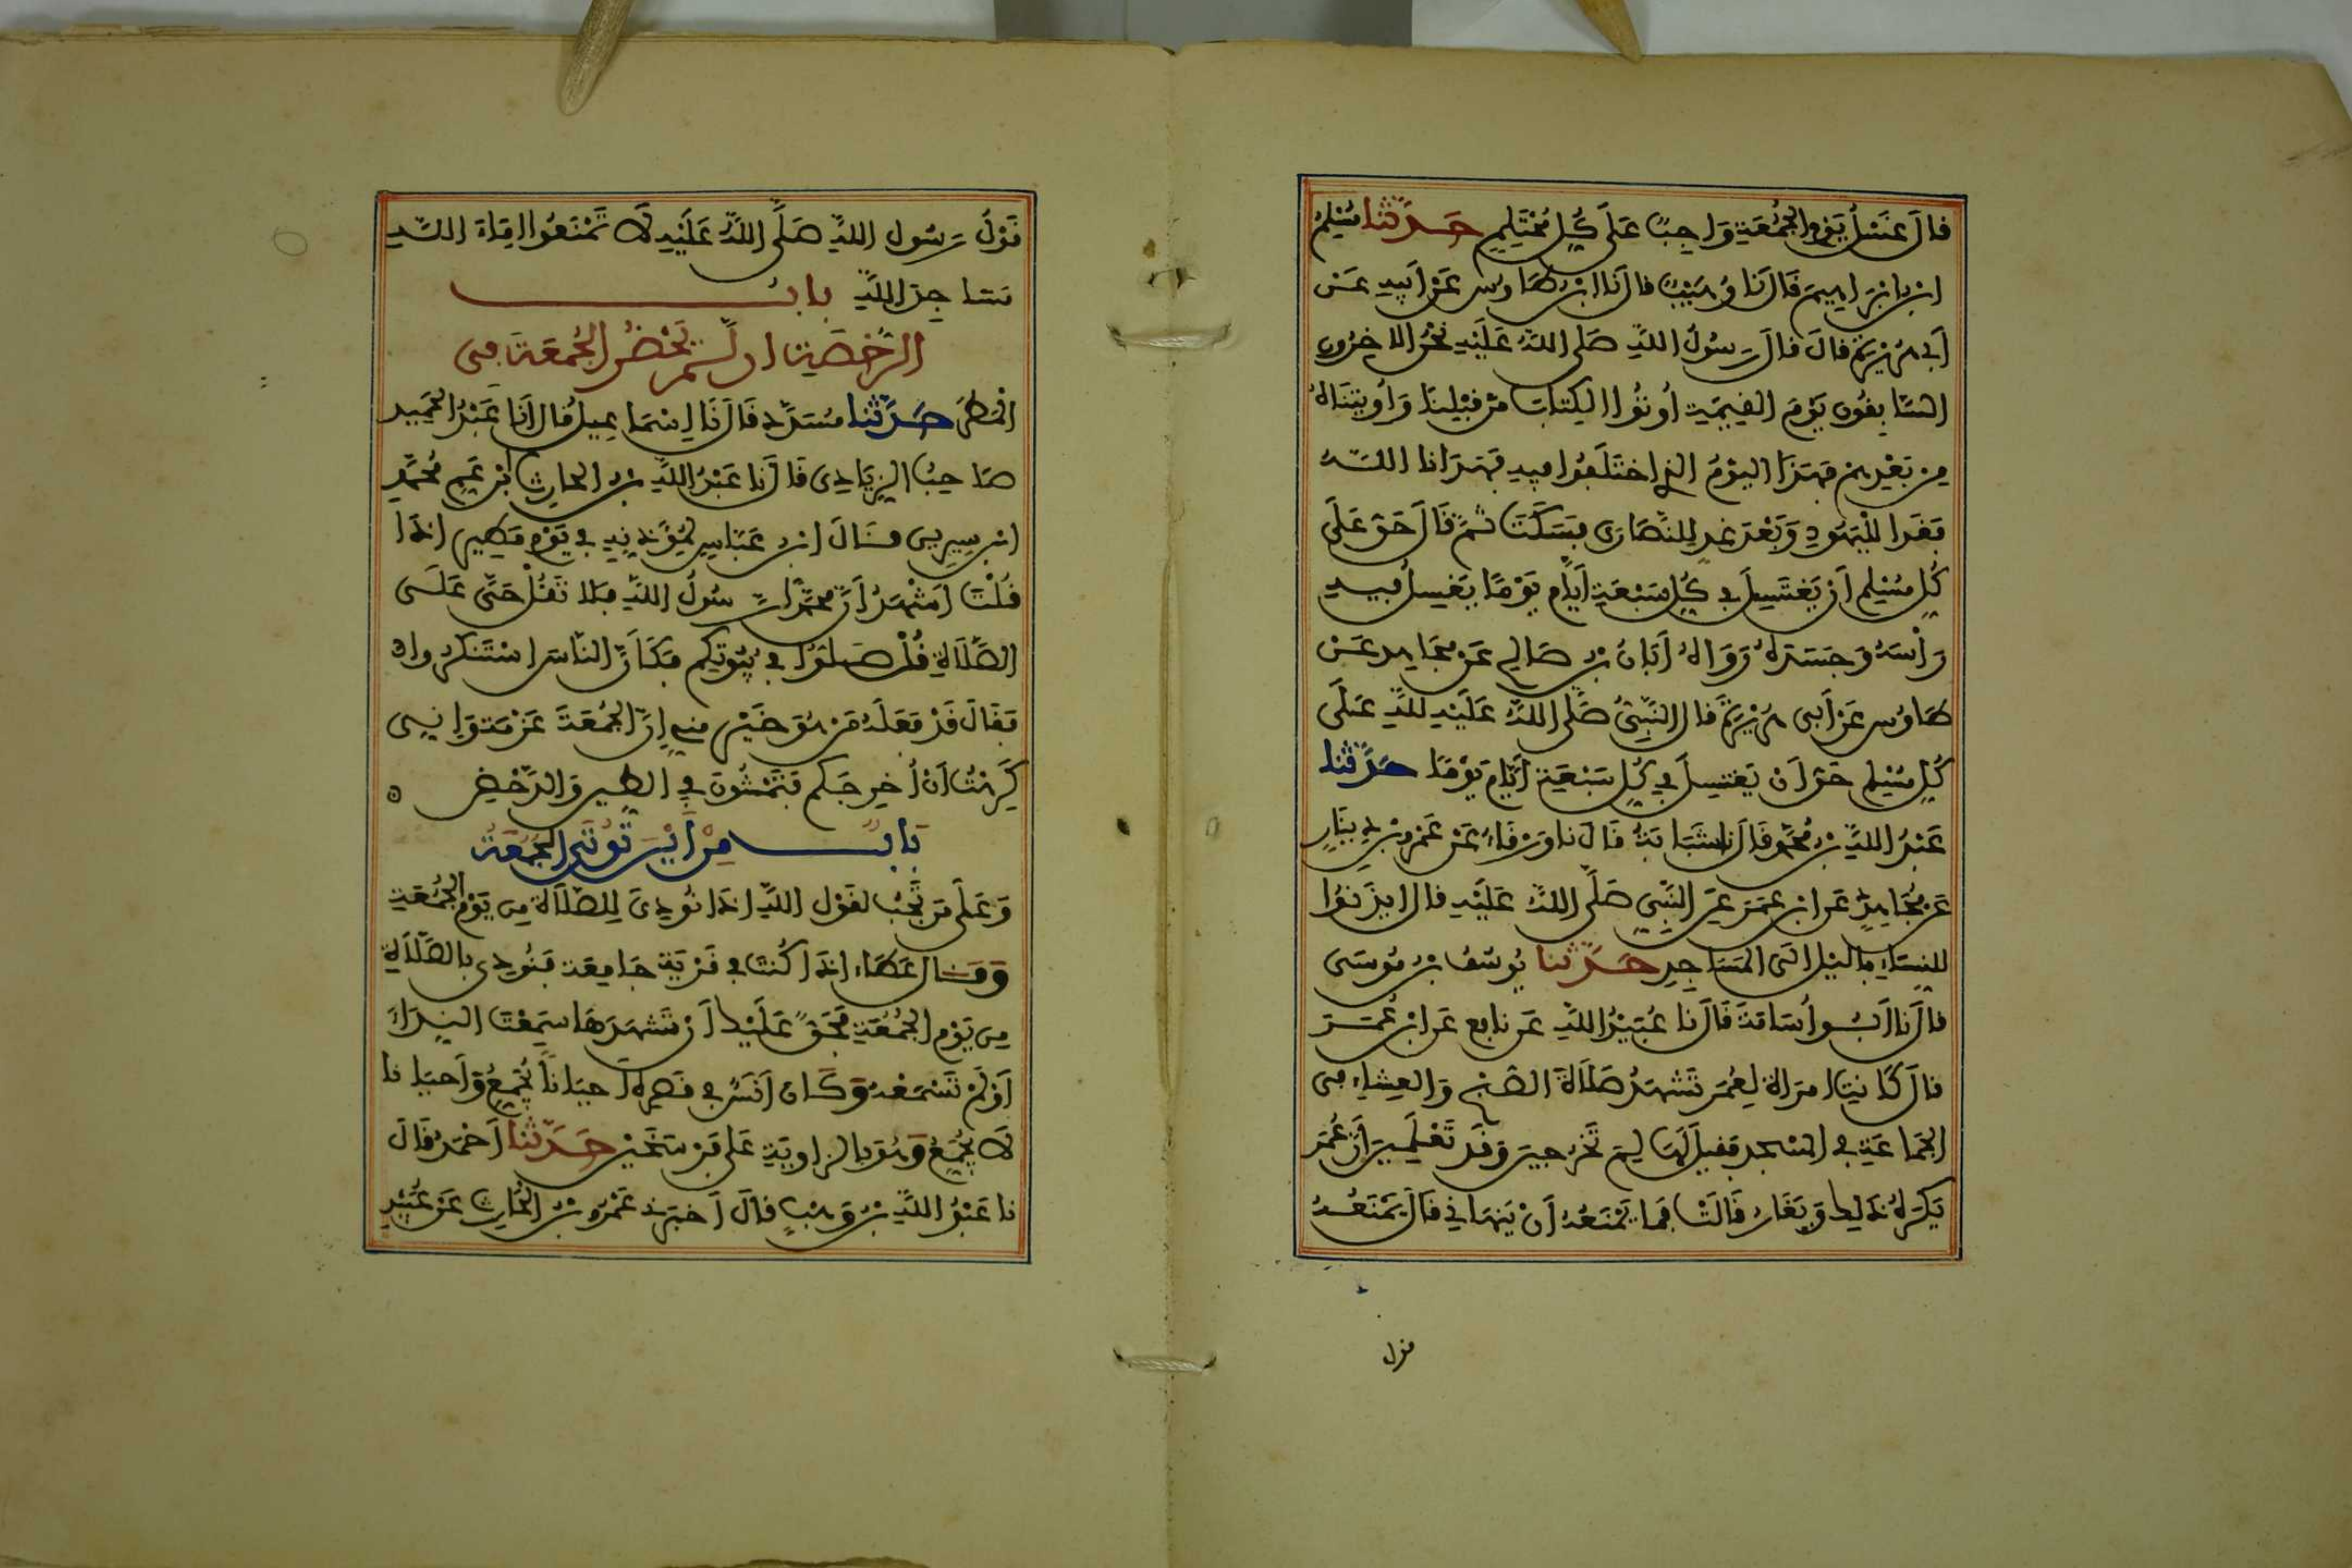 قال غسل يوم الجمعة واجب على كل محتلم حدثنا مسلم
ابن ابراهيم قال نا وهيب قال نا ابن طاوس عن ابيه عن
أبي هريرة قال قال رسول الله صلى الله عليه نحن الاخرون
السابقون يوم القيمة أوتوا الكتاب من قبلنا وأوتيناه
من بعدهم فهذا اليوم الذي اختلفوا فيه فهدانا الله
فغدا لليهود وبعد غد للنصارى فسكت ثم قال حق على
كل مسلم أن يغتسل في كل سبعة أيام يوما يغسل فيه
رأسه وجسده رواه أبان بن صالح عن مجاهد عن
طاوس عن أبي هريرة قال النبي صلى الله عليه لله على
كل مسلم حق أن يغتسل في كل سبعة أيام يوما حدثنا
عبد الله بن محمد قال نا شبابة قال نا ورقاء عن عمرو بن دينار
عن مجاهد عن ابن عمر عن النبي صلى الله عليه قال ايذنوا
للنساء بالليل الى المساجد حدثنا يوسف بن موسى
قال نا أبو أسامة قال نا عبيد الله عن نافع عن ابن عمر
قال كانت امراة لعمر تشهد صلاة الصبح والعشاء في
الجماعة في المسجد فقيل لها لم تخرجين وقد تعلمين أن عمر
يكره ذلك ويغار قالت فما يمنعه أن ينهاني قال يمنعه
قول
قول رسول الله صلى الله عليه لا تمنعوا اماء الله
مساجد الله باب
الرخصة ان لم يحضر الجمعة في
المطر حدثنا مسدد قال نا اسماعيل قال أنا عبد الحميد
صاحب الزيادي قال نا عبد الله بن الحارث ابن عم محمد
ابن سيرين قال ابن عباس لمؤذنه في يوم مطير اذا
قلت أشهد أن محمدا رسول الله فلا تقل حي على
الصلاة قل صلوا في بيوتكم فكأن الناس استنكروا
فقال قد فعله من هو خير مني إن الجمعة عزمة وإني
كرهت أن أخرجكم فتمشون في الطين والدحض
باب من أين توتى الجمعة
وعلى من تجب لقول الله اذا نودي للصلاة من يوم الجمعة
وقال عطاء اذا كنت في قرية جامعة فنودي بالصلاة
من يوم الجمعة فحق عليك أن تشهدها سمعت النداء
أو لم تسمعه وكان أنس في قصره أحيانا يجمع وأحيانا
لا يجمع وهو بالزاوية على فرسخين حدثنا أحمد قال
نا عبد الله بن وهب قال أخبرني عمرو بن الحارث عن عبيد